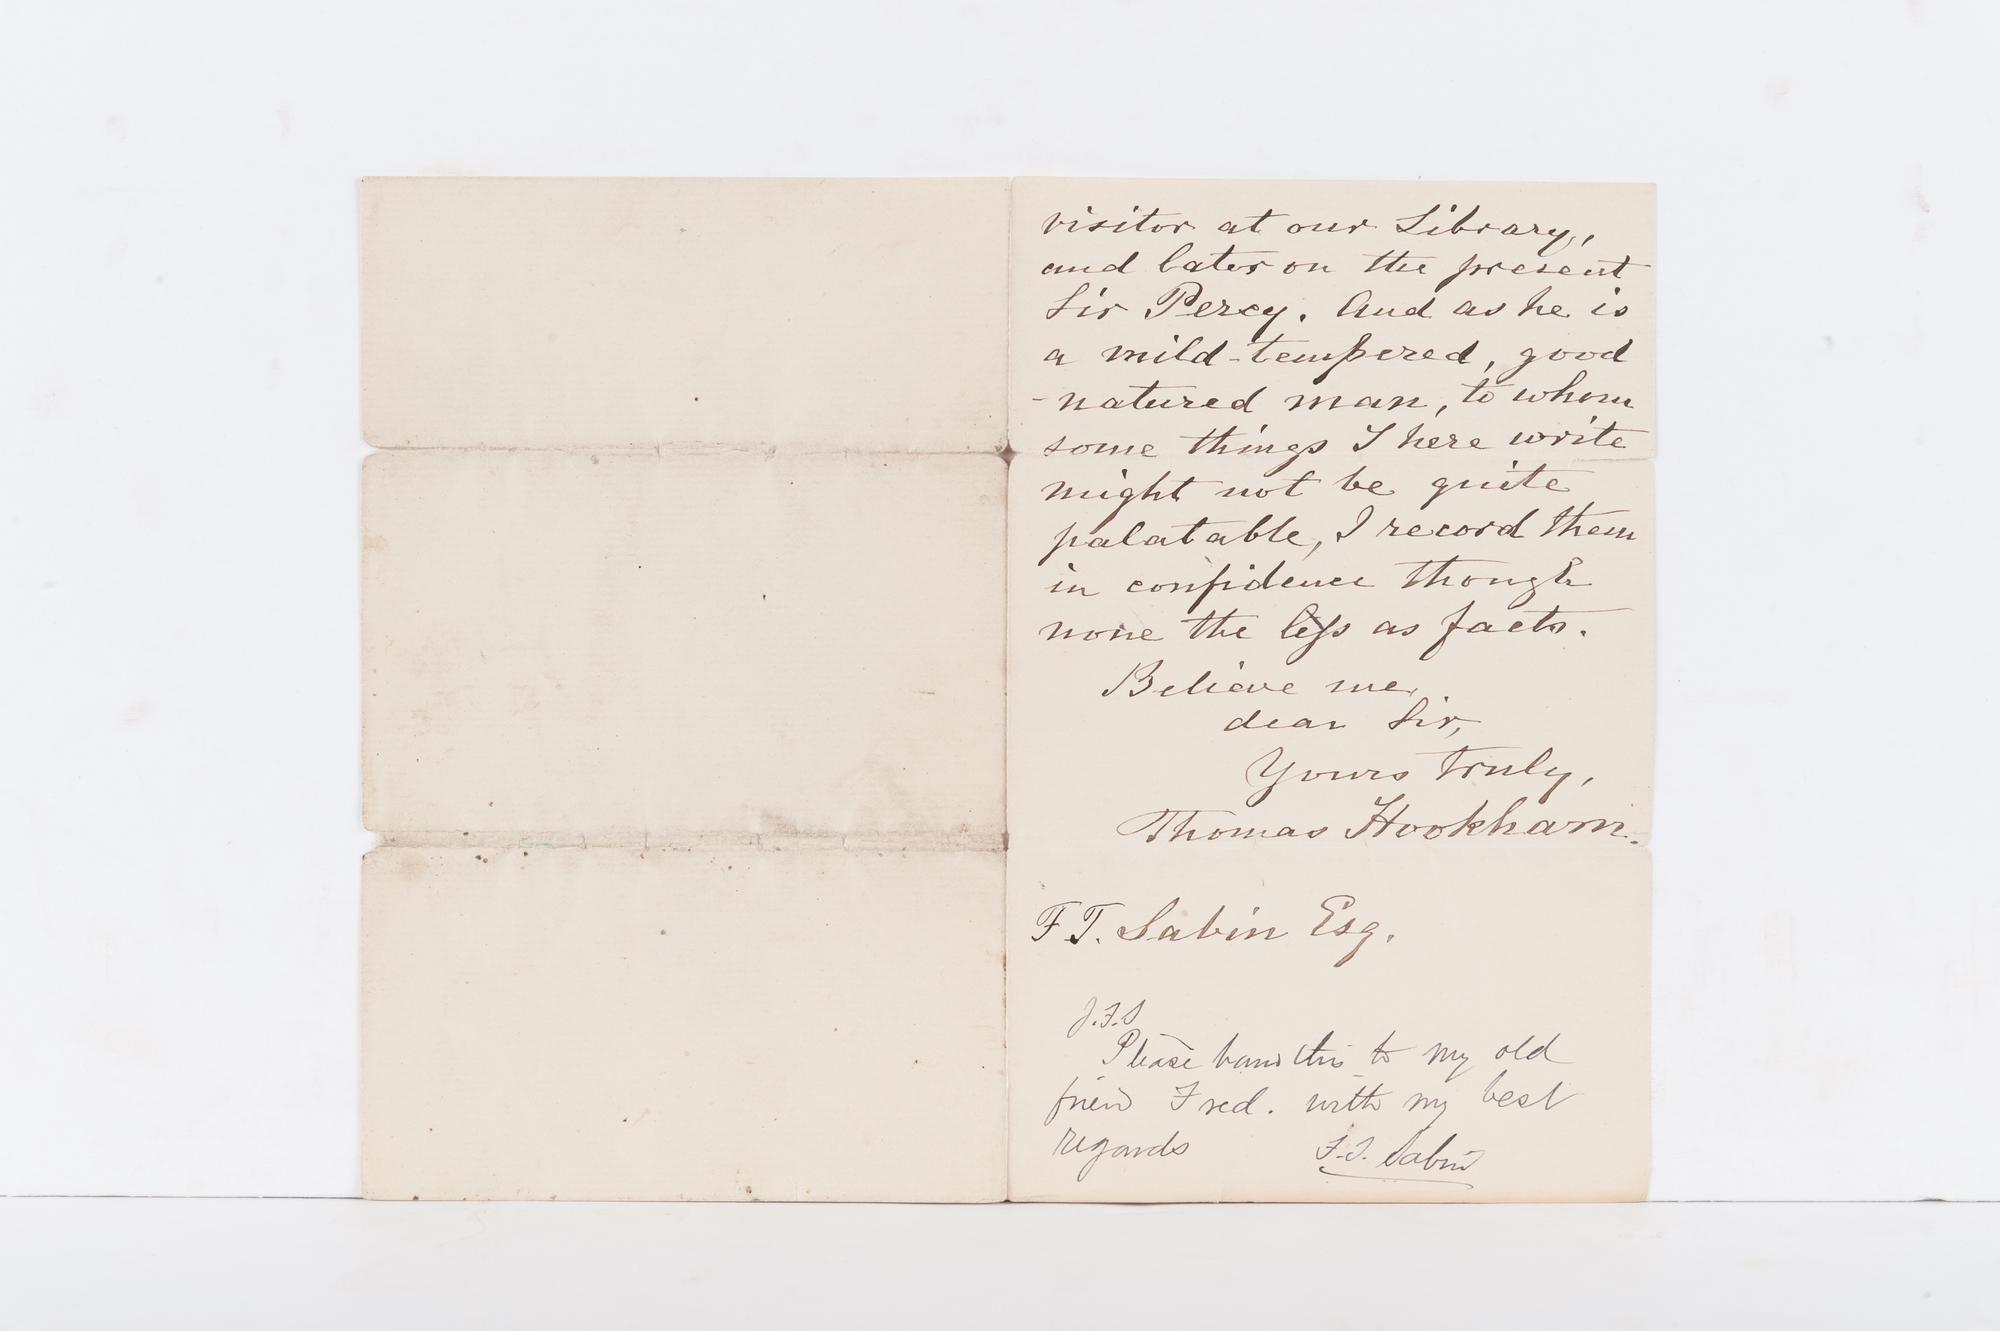 visitor at our Library,
and later on the present
Sir Percy. And as he is
a mild-tempered, good
-natured man, to whom
some things I here write
might not be quite
palatable, I record them
in confidence though
none the less as facts.
Believe me,
dear Sir,
Yours truly,
Thomas Hookham.
F. T. Sabin Esq.
J.F.S
Please hand this to my old
friend Fred. with my best
regards F.T. Sabin